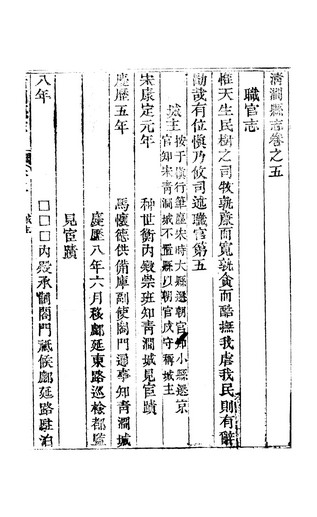 清澗縣志卷之五
職官志
惟天生民樹之司牧孰廉而寬孰貪而酷撫我虐我民則有辭
勖哉有位愼乃攸司述職官第五
城主
按于愼行筆麈宋時大縣選朝官知小縣選京
官知宋靑澗城不隸縣以朝官戍守稱城主
宋康定元年
种世衡內殿崇班知靑澗城見宦蹟
慶曆五年
馬懷德供備庫副使閤門通事知靑澗城
慶曆八年六月移鄜延東路巡檢都監
見宦蹟
八年
□□□內殿承制閤門祗候鄜延路駐泊